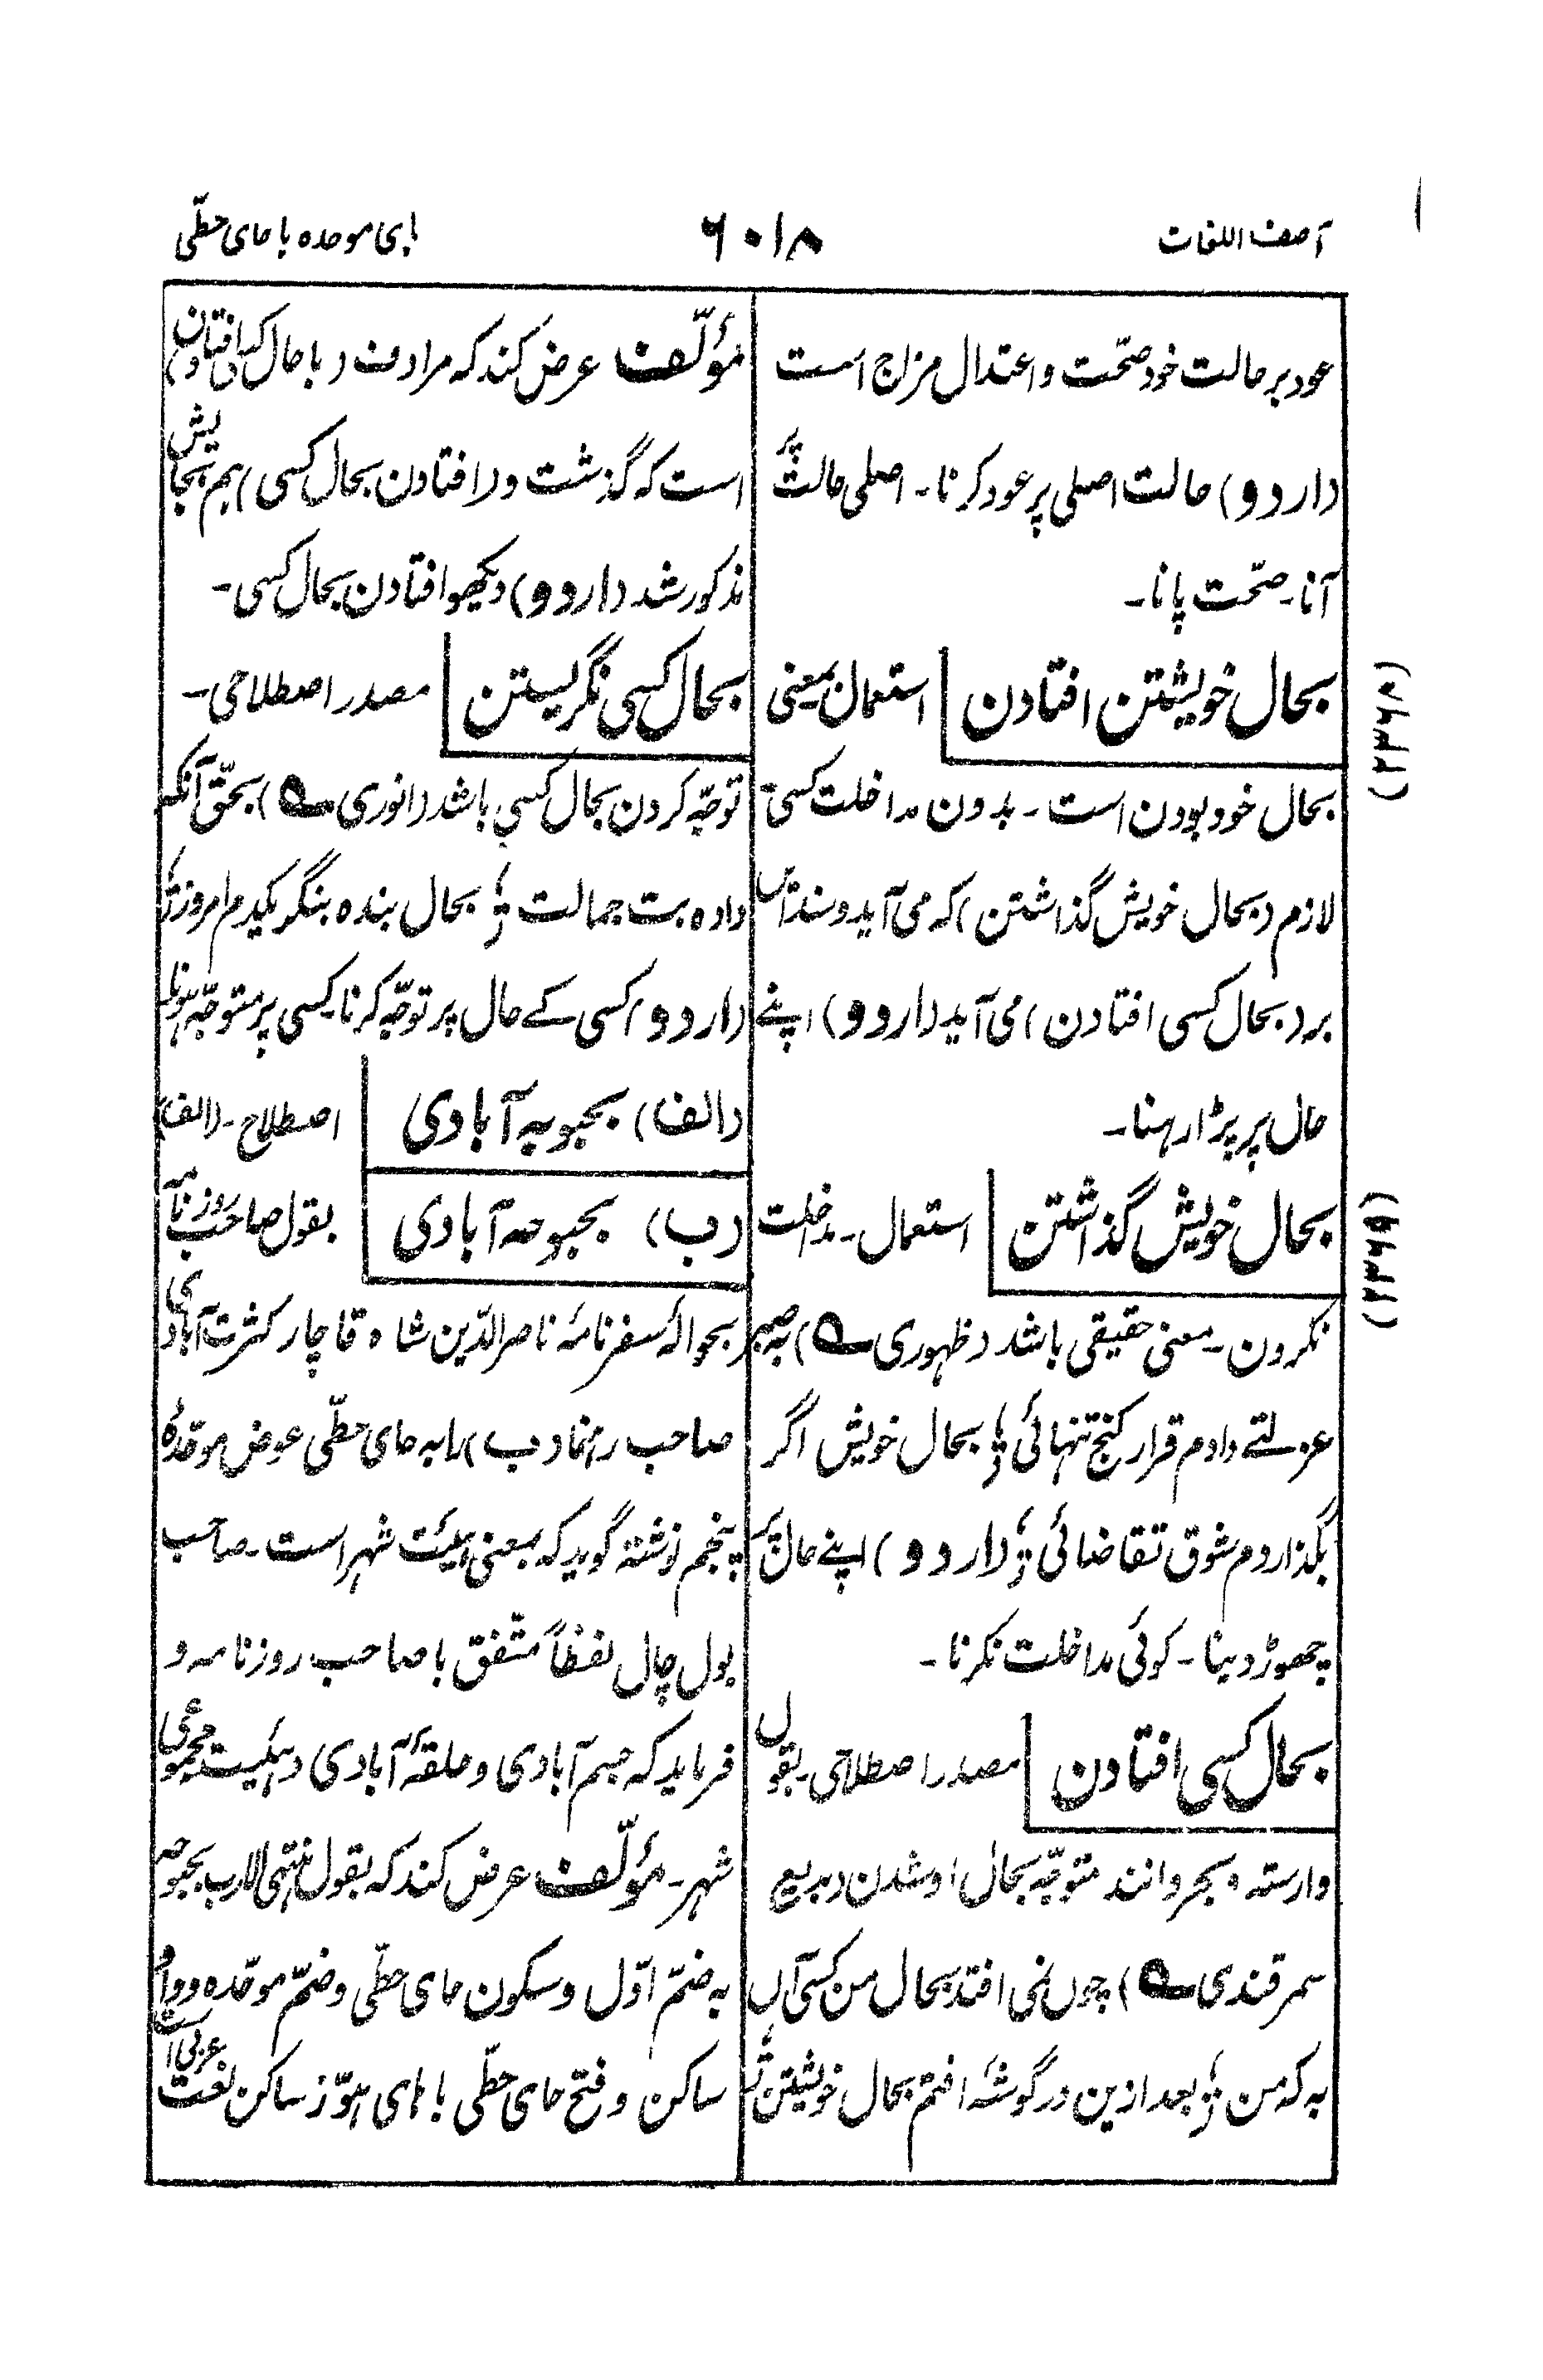 آصف اللغات
۶۰۱۸
بای موحده با حای حطّی
عود بر حالت خود صحّت و اعتدال مزاج است
(اردو) حالت اصلی پر عود کرنا۔ اصلی حالت پر
آنا۔ صحّت پانا۔
بحال خویشتن افتادن | استعمال بمعنی
بحال خود بودن است ۔ بدون مداخلت کسی ۔
لازم (بحال خویش گذاشتن) که می آید و سند این
بر (بحال کسی افتادن) می آید (اردو) اپنے
حال پر پڑا رہنا۔
بحال خویش گذاشتن | استعمال ۔ مداخلت
نکردن ۔ معنی حقیقی باشد (ظهوری ؎) به صبر
عزلتے دادم قرار کنج تنهائی ؛ بحال خویش اگر
بگذاردم شوق تقاضائی ؛ (اردو) اپنے حال پر
چھوڑ دینا ۔ کوئی مداخلت نکرنا ۔
بحال کسی افتادن | مصدر اصطلاحی ۔ بقول
وارسته و بحر و انند متوجّه بحال او شدن (بدیع
سمرقندی ؎) چوں نمی افتد بحال من کسی آں
به که من ؛ بعد ازین در گوشۀ افتم بحال خویشتن ؛
مؤلّف عرض کند که مرادف (با حال کسی افتادن)
است که گذشت و (افتادن بحال کسی) هم بجایش
مذکور شد (اردو) دیکھو افتادن بحال کسی ۔
بحال کسی نگریستن | مصدر اصطلاحی ۔
توجّه کردن بحال کسی باشد (انوری ؎) بحقّ آنکه
داده بت جمالت ؛ بحال بنده بنگر یکدم امروز ؛
(اردو) کسی کے حال پر توجّه کرنا۔ کسی پر متوجّه ہونا
(الف) بحبوبه آبادی | اصطلاح ۔ (الف)
(ب) بحبوحه آبادی | بقول صاحب روزنامه
بحوالۀ سفرنامۀ ناصرالدّین شاه قاچار کثرت آبادی
صاحب رهنما (ب) را به حای حطّی عوض موحّدۀ
پنجم نوشته گوید که بمعنی هیئت شهر است ۔ صاحب
بول چال لفظاً متّفق با صاحب روزنامه و
فرماید که جسم آبادی و حلقۀ آبادی و هیئت مجموعی
شهر ۔ مؤلّف عرض کند که بقول منتهی الارب بحبوحه
به ضمّ اوّل و سکون حای حطّی و ضمّ موحّده و واو
ساکن و فتح حای حطّی با های هوّز ساکن لغت عربی است
(۲۳۶۸)
(۲۳۶۹)